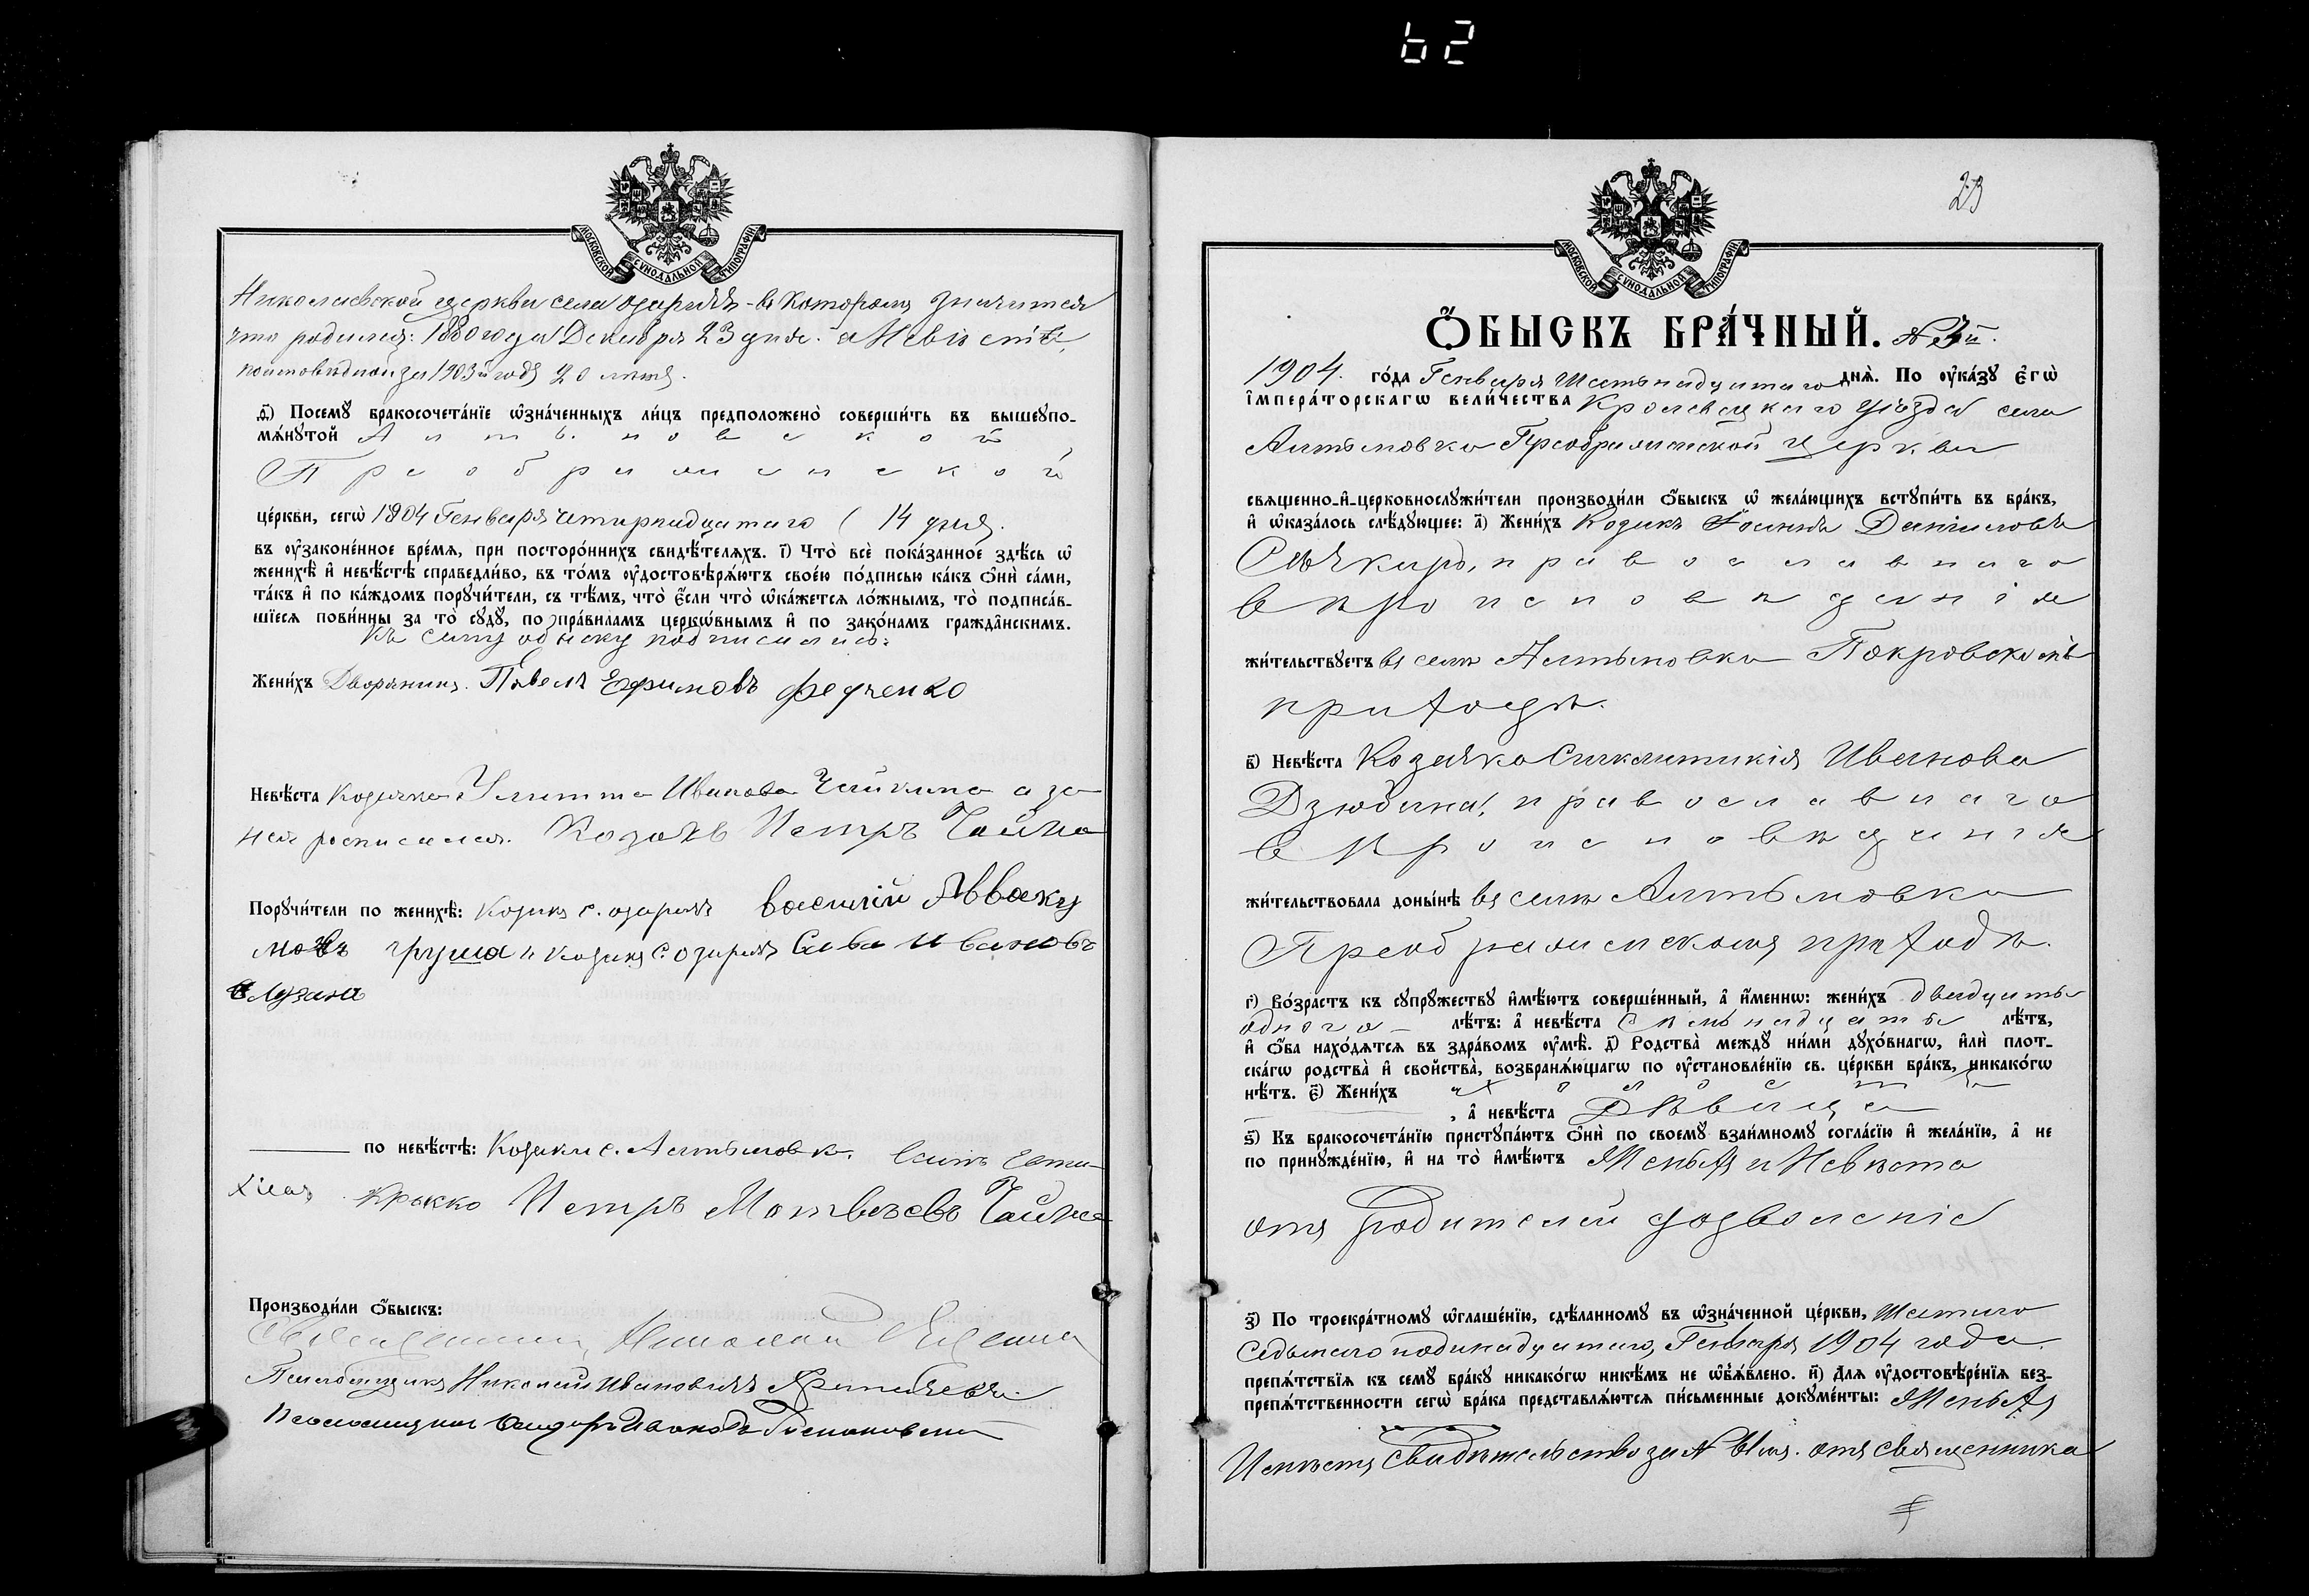 62
МОСКОВСКОЙ СѴНОДАЛЬНОЙ ТИПОГРАФІИ
Николаевской церкви села Озаричъ - въ которомъ значится
что родился: 1880 года Декабря 23 дня. а Невѣстѣ,
исповѣдной за 1903й годъ 20 лѣтъ.
ѳ҃) Посемꙋ̀ бракосочета́нїе ѡ҆зна́ченныхъ ли́цъ предположено̀ соверши́ть въ вышеꙋпо-
мѧ́нꙋтой Алтыновской
Преображенской
це́ркви, сегѡ̀ 1904 Генваря четырнадцатаго (14 дня.
въ ᲂу҆законе́нное вре́мѧ, при посторо́ннихъ свидѣ́телѧхъ. і҃) Что̀ всѐ пока́занное здѣ́сь ѡ҆
женихѣ̀ и҆ невѣ́стѣ справедли́во, въ то́мъ ᲂу҆достовѣрѧ́ютъ свое́ю по́дписью ка́къ ѻ҆нѝ са́ми,
та́къ и҆ по ка́ждомъ порꙋчи́тели, съ тѣ́мъ, что̀ є҆́сли что̀ ѡ҆ка́жетсѧ ло́жнымъ, то̀ подписа́в-
шїесѧ пови́нны за то̀ сꙋдꙋ̀, по пра́виламъ церкѡ́внымъ и҆ по зако́намъ гражда̂нскимъ.
Къ сему обыску подписались:
Жени́хъ Дворянинъ. Павелъ Ефимовъ Федченко
Невѣ́ста Козачка Улитта Иванова Чайкина а за
нея росписался. Козакъ Петръ Чайка
Порꙋчи́тели по женихѣ̀: Козакъ с. Озаричъ Василій Авваку
мовъ Груша и козакъ с. Озаричъ Сава Ивановъ
Лузанъ
по невѣ́стѣ: Козаки с. Алтыновки.
Петръ Матвѣевъ Чайка
Производи́ли ѻ҆́быскъ:
Священникъ Николай
Псаломщикъ Николай Ивановичъ
Псаломщикъ
23
МОСКОВСКОЙ СѴНОДАЛЬНОЙ ТИПОГРАФІИ
Ѻ҆́БЫСКЪ БРА́ЧНЫЙ. № 3й.
1904. го́да Генваря Шестьнадцатаго днѧ̀. По ᲂу҆ка́зꙋ є҆гѡ̀
і҆мпера́торскагѡ вели́чества Кролевецкаго уѣзда села
Алтыновки Преображенской церкви
свѧщенно-и҆-церковнослꙋжи́тели производи́ли ѻ҆́быскъ ѡ҆ жела́ющихъ встꙋпи́ть въ бра́къ,
и҆ ѡ҆каза́лось слѣ́дꙋющее: а҃) Жени́хъ Козакъ Іоаннъ Даниловъ
православнаго
вѣроисповѣданія
жи́тельствꙋетъ въ селѣ Алтыновкѣ Покровскомъ
приходѣ.
в҃) Невѣ́ста Козачка Синклитикія Иванова
Дзюбина, православнаго
вѣроисповѣданія
жи́тельствовала доны́нѣ въ селѣ Алтыновкѣ
Преображенскомъ приходѣ.
г҃) Во́зрастъ къ сꙋпрꙋ́жествꙋ и҆мѣ́ютъ соверше́нный, а҆ и҆́меннѡ: жени́хъ двадцать
одного лѣ́тъ: а҆ невѣ́ста Семьнадцать лѣ́тъ,
и҆ ѻ҆́ба нахо́дѧтсѧ въ здра́вомъ ᲂу҆мѣ̀. д҃) Родства̀ междꙋ̀ ни́ми дꙋхо́внагѡ, и҆лѝ плот-
ска́гѡ родства̀ и҆ свойства̀, возбранѧ́ющагѡ по ᲂу҆становле́нїю св. це́ркви бра́къ, никако́гѡ
нѣ́тъ. є҃) Жени́хъ холостъ
, а҆ невѣ́ста Дѣвица
ѕ҃) Къ бракосочета́нїю пристꙋпа́ютъ ѻ҆нѝ по своемꙋ̀ взаи́мномꙋ согла́сїю и҆ жела́нїю, а҆ не
по принꙋжде́нїю, и҆ на то̀ и҆мѣ́ютъ Женихъ и Невѣста
отъ родителей дозволеніе
з҃) По троекра́тномꙋ ѡ҆глаше́нїю, сдѣ́ланномꙋ въ ѡ҆зна́ченной це́ркви, Шестаго
Седьмаго Генваря 1904 года
препѧ́тствїѧ къ семꙋ̀ бра́кꙋ никако́гѡ никѣ́мъ не ѡ҆б̾ѧ́влено. и҃) Для ᲂу҆достовѣре́нїѧ без-
препѧ́тственности сегѡ̀ бра́ка представлѧ́ютсѧ пи́сьменные докꙋме́нты: Женихъ
свидѣтельство за № отъ священника